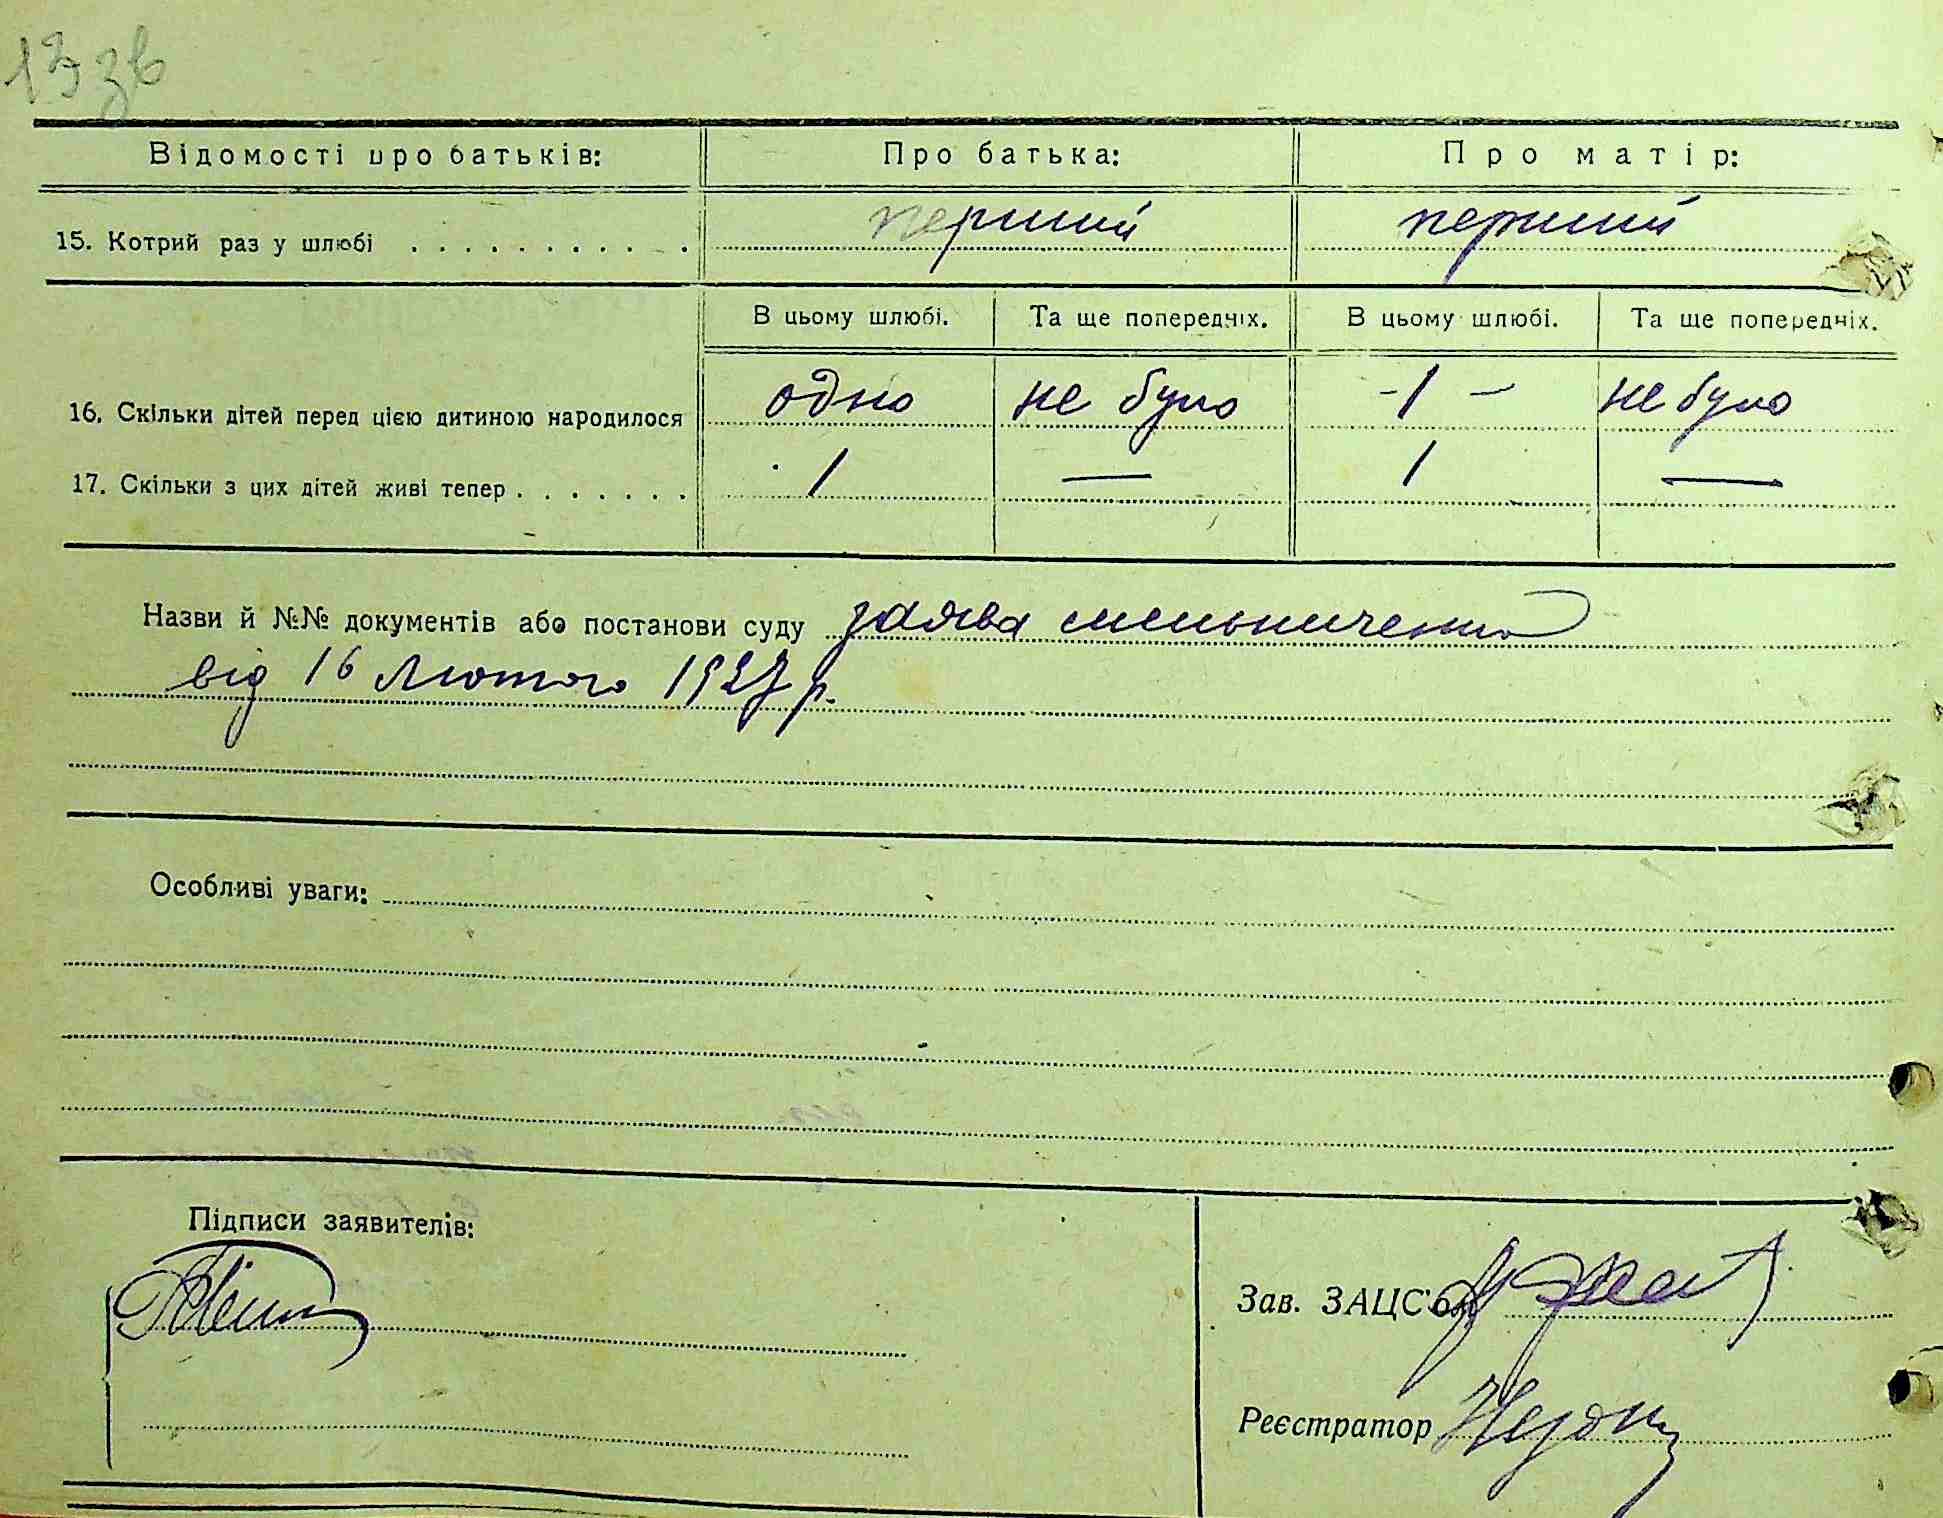 13 зв
Відомості про батьків: Про батька: Про матір:
15. Котрий раз у шлюбі . . . . . . . . . . перший перший
В цьому шлюбі. Та ще попередніх. В цьому шлюбі. Та ще попередніх.
16. Скільки дітей перед цією дитиною народилося одно не було -1- не було
17. Скільки з цих дітей живі тепер . . . . . . . 1 — 1 —
Назви й №№ документів або постанови суду заява Мельниченко
від 16 Лютого 1927 р.
Особливі уваги:
Підписи заявителів:
Зав. ЗАЦС'ом
Реєстратор